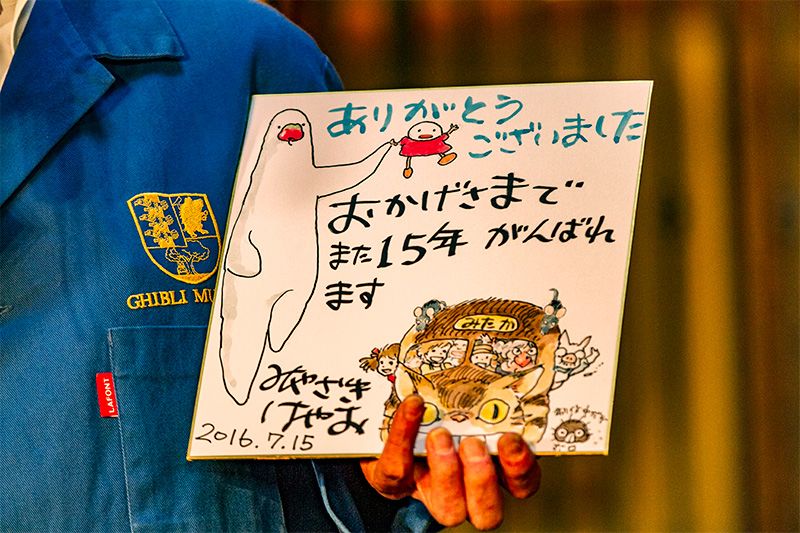 ありがとう
ございました
おかげさまで
また15年 がんばれ
ます
みたか
みやざき
はやお
2016.7.15
GHIBLI MU
LAFONT